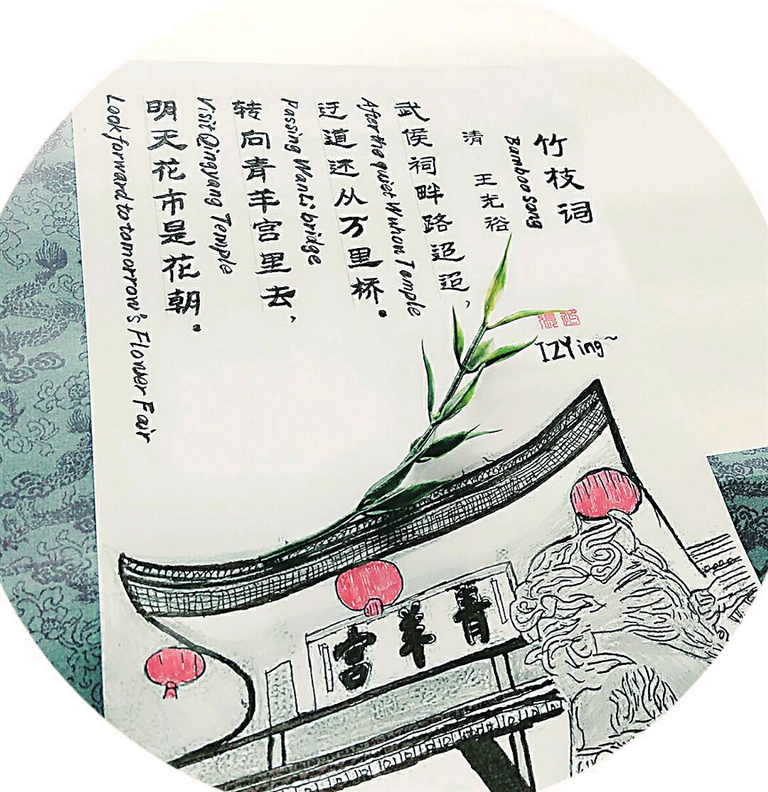 竹枝词
Bamboo song
清 王光裕
武侯祠畔路迢迢，
After the quiet Wuhou Temple
迂道还从万里桥。
Passing Wanli bridge
转向青羊宫里去，
Visit Qingyang Temple
明天花市是花朝。
Look forward to tomorrow's Flower Fair
IZYing~
青羊宫